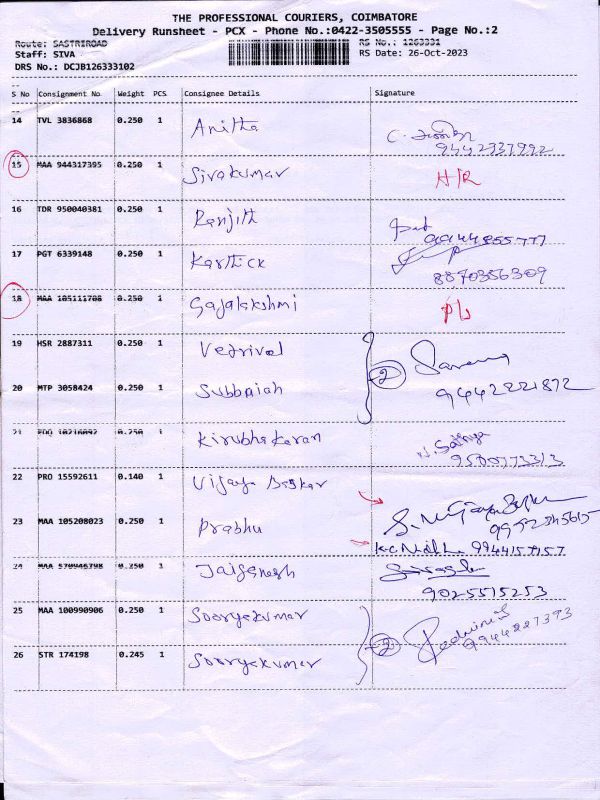 THE PROFESSIONAL COURIERS, COIMBATORE
Delivery Runsheet - PCX - Phone No.:0422-3505555 - Page No.:2
Route: SASTRIROAD RS No.: 1263331
Staff: SIVA RS Date: 26-Oct-2023
DRS No.: DCJB126333102
S No Consignment No Weight PCS Consignee Details Signature
14 TVL 3836868 0.250 1 Anitha
9442337992
15 MAA 944317395 0.250 1 Sivakumar H/R
16 TDR 950040381 0.250 1 Ranjith
9944855777
17 PGT 6339148 0.250 1 Karthick
8870356309
18 MAA 105111708 0.250 1 Gajalakshmi
19 HSR 2887311 0.250 1 Vetrivel
2
20 MTP 3058424 0.250 1 Subbaiah 9442221872
21 PDQ 10216092 0.250 1 Kirubhakaran N. Sathya
9500773313
22 PRO 15592611 0.140 1 Vijaya Baskar
23 MAA 105208023 0.250 1 Prabhu
9944157157
24 MAA 570946798 0.250 1 Jaiganesh
9025515253
25 MAA 100990906 0.250 1 Sooryakumar
2
26 STR 174198 0.245 1 Sooryakumar